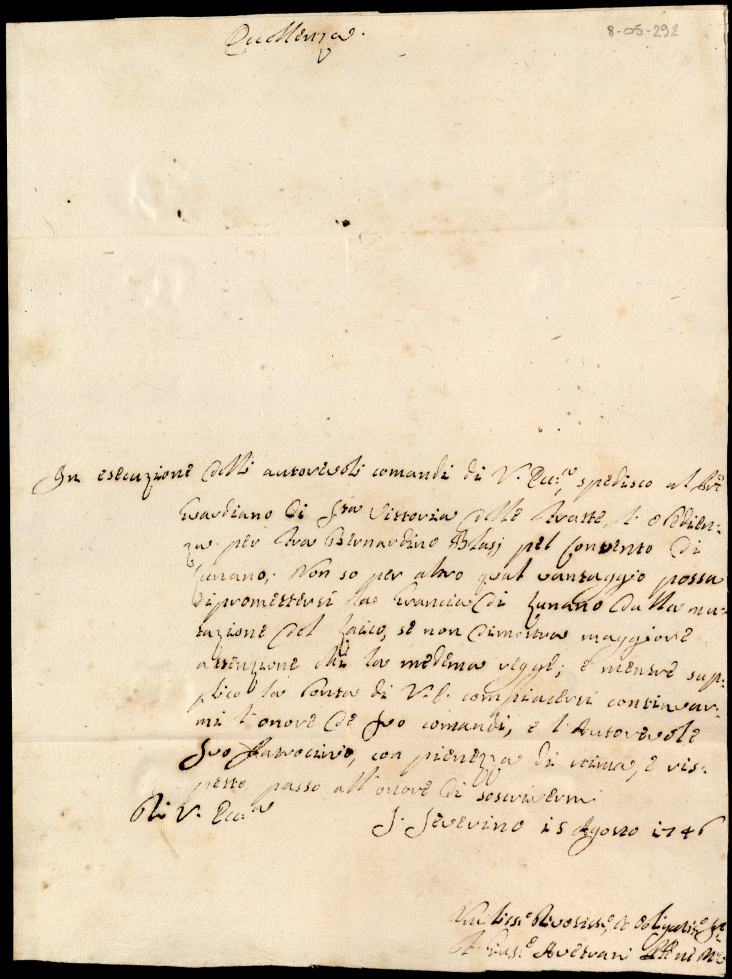 Eccellenza.
8-05-292
In esecuzione delli autorevoli comandi di V. Ecc.za, spedisco al
Guardiano di Sta Vittoria delle Fratte, l'obedien-
za per Fra Bernardino Blasj pel Convento di
Cunano. Non so per altro qual vantaggio possa
ripromettersi la Grancia di Lunano dalla mu-
tazione del Laico, se non dimostra maggiore
attenzione chi la medema regge; e mentre sup-
plico la Bontà di V. E. compiacersi continuar-
mi l'onore de suo comandi, e l'Autorevole
suo Patrocinio, con pienezza di stima, e ris-
petto passo all'onore di soscrivermi
Di V. Ecc.za
S. Severino 15 Agosto 1746
Umiliss.o Divotiss.o et Obligatiss.o